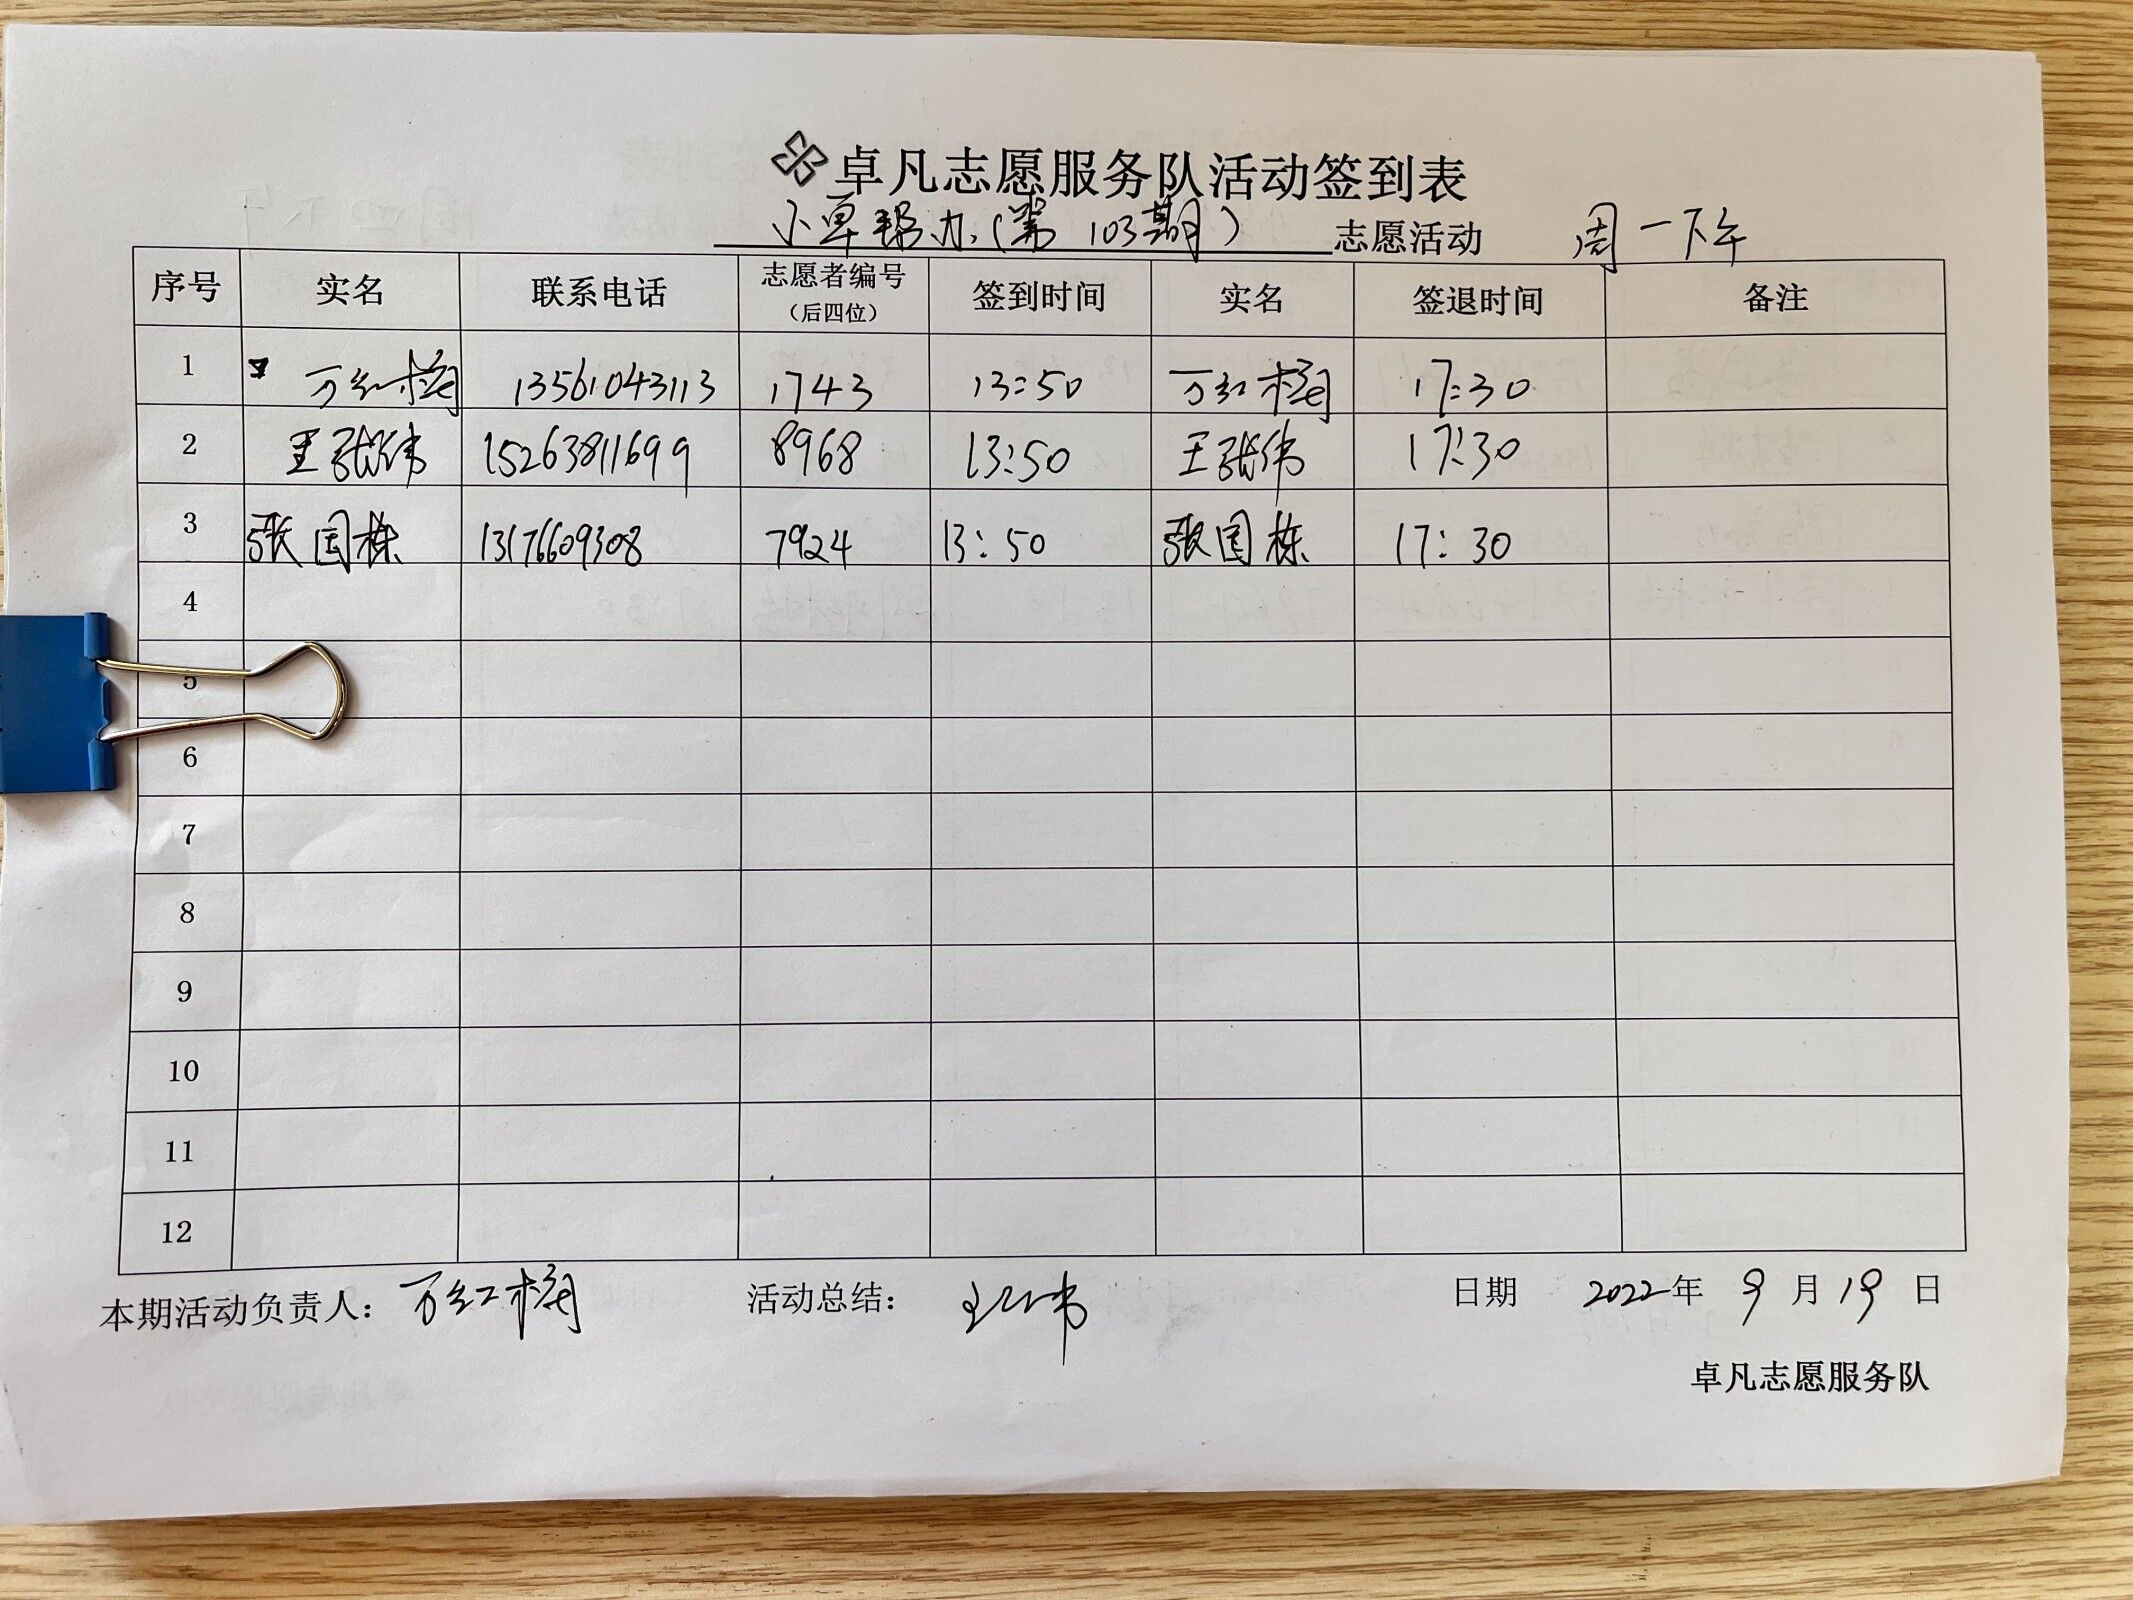 卓凡志愿服务队活动签到表
小卓帮办(第103期) 志愿活动 周一下午
序号 实名 联系电话 志愿者编号(后四位) 签到时间 实名 签退时间 备注
1 万红梅 13561043113 1743 13:50 万红梅 17:30
2 王张伟 15263811699 8968 13:50 王张伟 17:30
3 张国栋 13176609308 7924 13:50 张国栋 17:30
4
5
6
7
8
9
10
11
12
本期活动负责人: 万红梅 活动总结: 日期 2022年 9月19日
卓凡志愿服务队